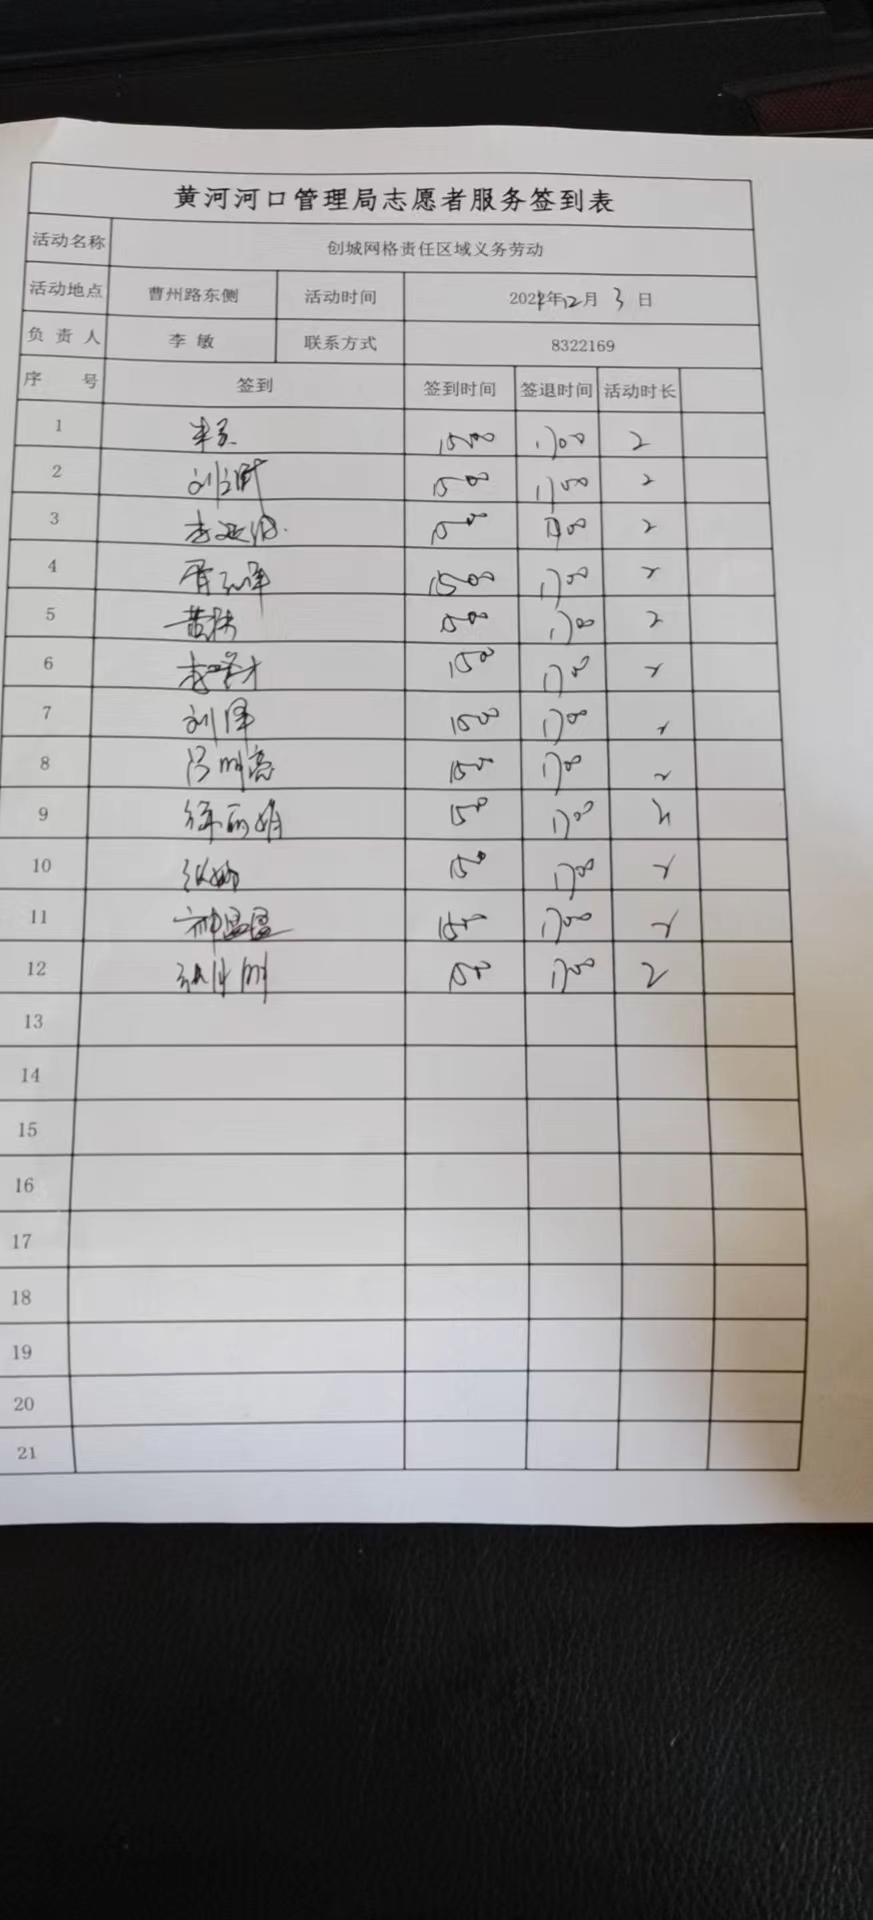 黄河河口管理局志愿者服务签到表
活动名称 创城网格责任区域义务劳动
活动地点 曹州路东侧 活动时间 12月3日
负责人 李敏 联系方式 8322169
序号 签到 签到时间 签退时间 活动时长
1 1500 1700 2
2 1500 1700 2
3 1500 1700 2
4 1500 1700 2
5 黄林 1500 1700 2
6 1500 1700 2
7 刘泽 1500 1700 2
8 1500 1700 2
9 徐丽娟 1500 1700 2
10 张娜 1500 1700 2
11 1500 1700 2
12 1500 1700 2
13
14
15
16
17
18
19
20
21